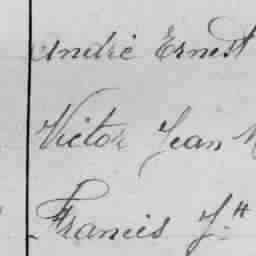 André Ernest
Victor Jean
Francis J.h